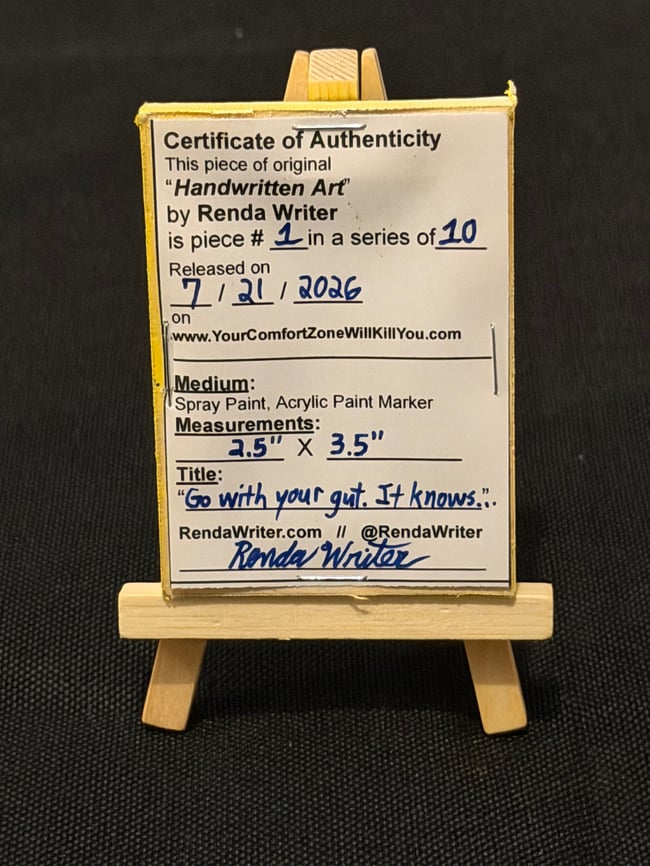 Certificate of Authenticity
This piece of original
“Handwritten Art”
by Renda Writer
is piece # 1 in a series of 10
Released on
7 / 21 / 2026
on
www.YourComfortZoneWillKillYou.com
Medium:
Spray Paint, Acrylic Paint Marker
Measurements:
2.5" X 3.5"
Title:
“Go with your gut. It knows.”.
RendaWriter.com // @RendaWriter
Renda Writer